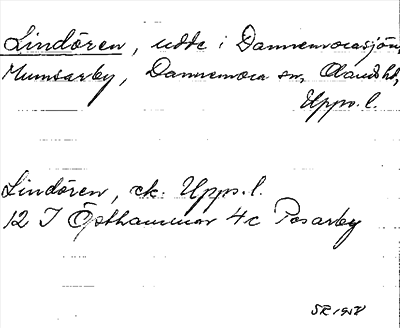 Lindören, udde i Dannemorasjön,
Mumsarby, Dannemora sn, Olands hd,
Upps. l.
Lindören, ek. Upps. l.
12 I Östhammar 4c Posarby
SR 1958